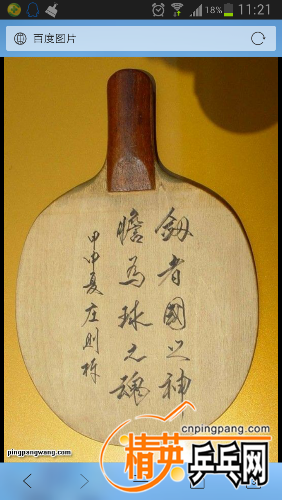 18% 11:21
百度图片
釼者國之神
膽为球之魂
甲申夏庄则栋
pingpangwang.com
cnpingpang.com
精英乒乓网